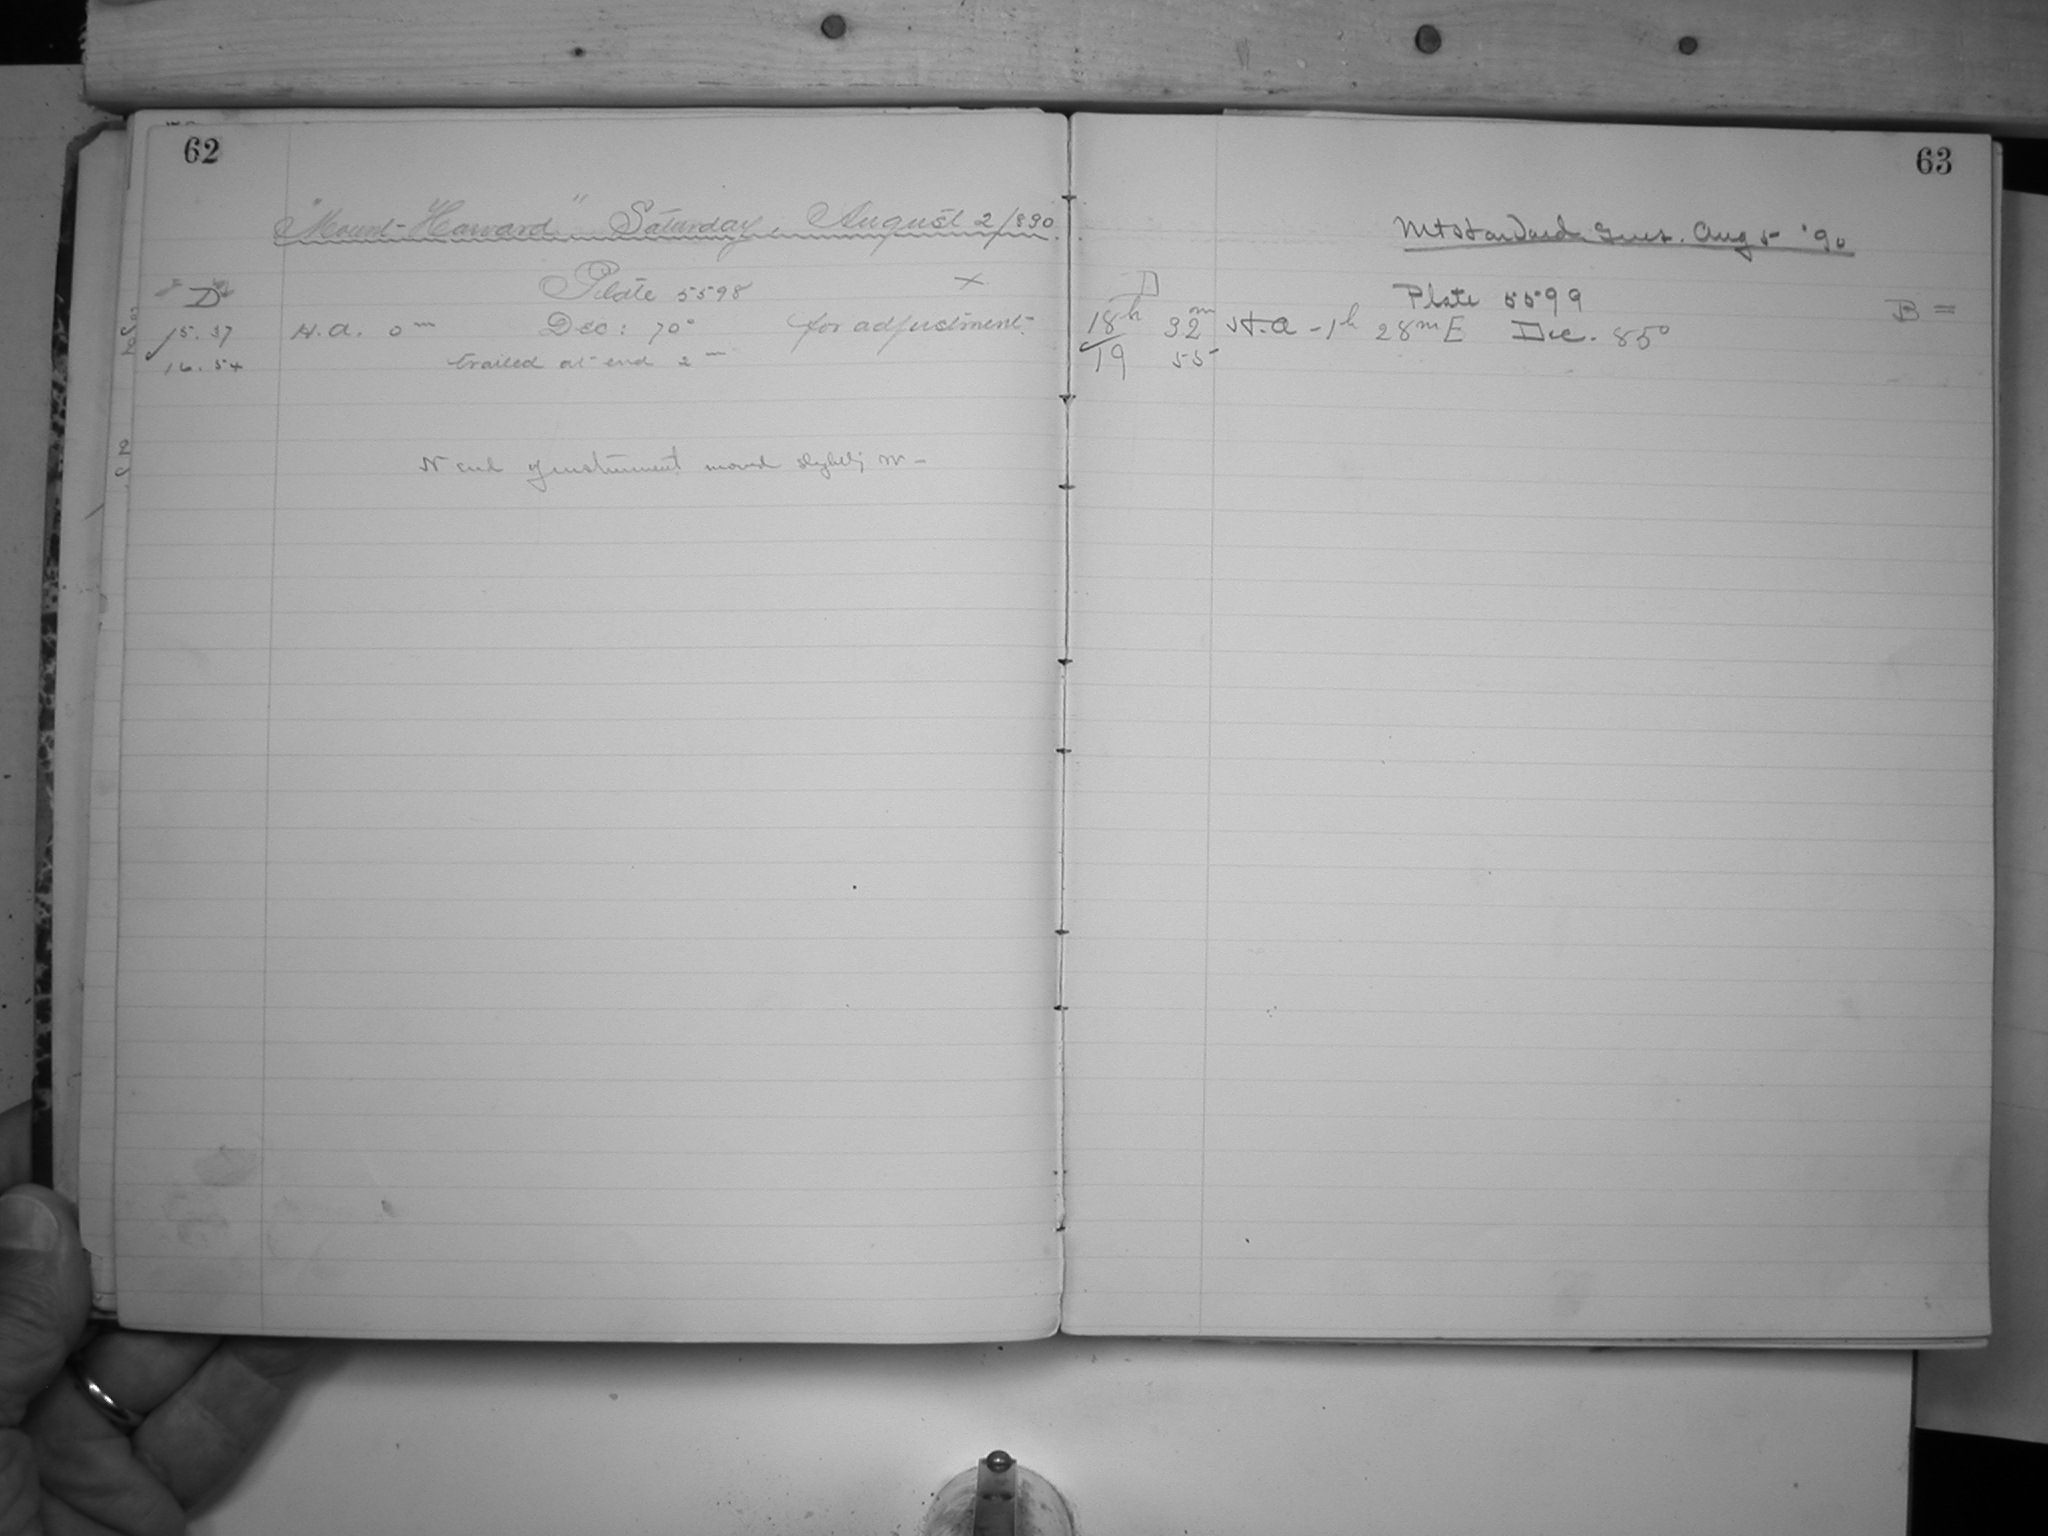 62
"Mount-Harvard" Saturday, August 2/890
D
Plate 5598 X
15.37 H.A. 0m Dec: 70° for adjustment.
16.54 trailed at end 2m
N end of instrument moved slightly W-
63
Mt Harvard Tues. Aug 5 '90
D
Plate 5599 B =
18h 32m H.A -1h 28m E Dec. 85°
19 55